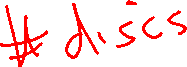 # discs